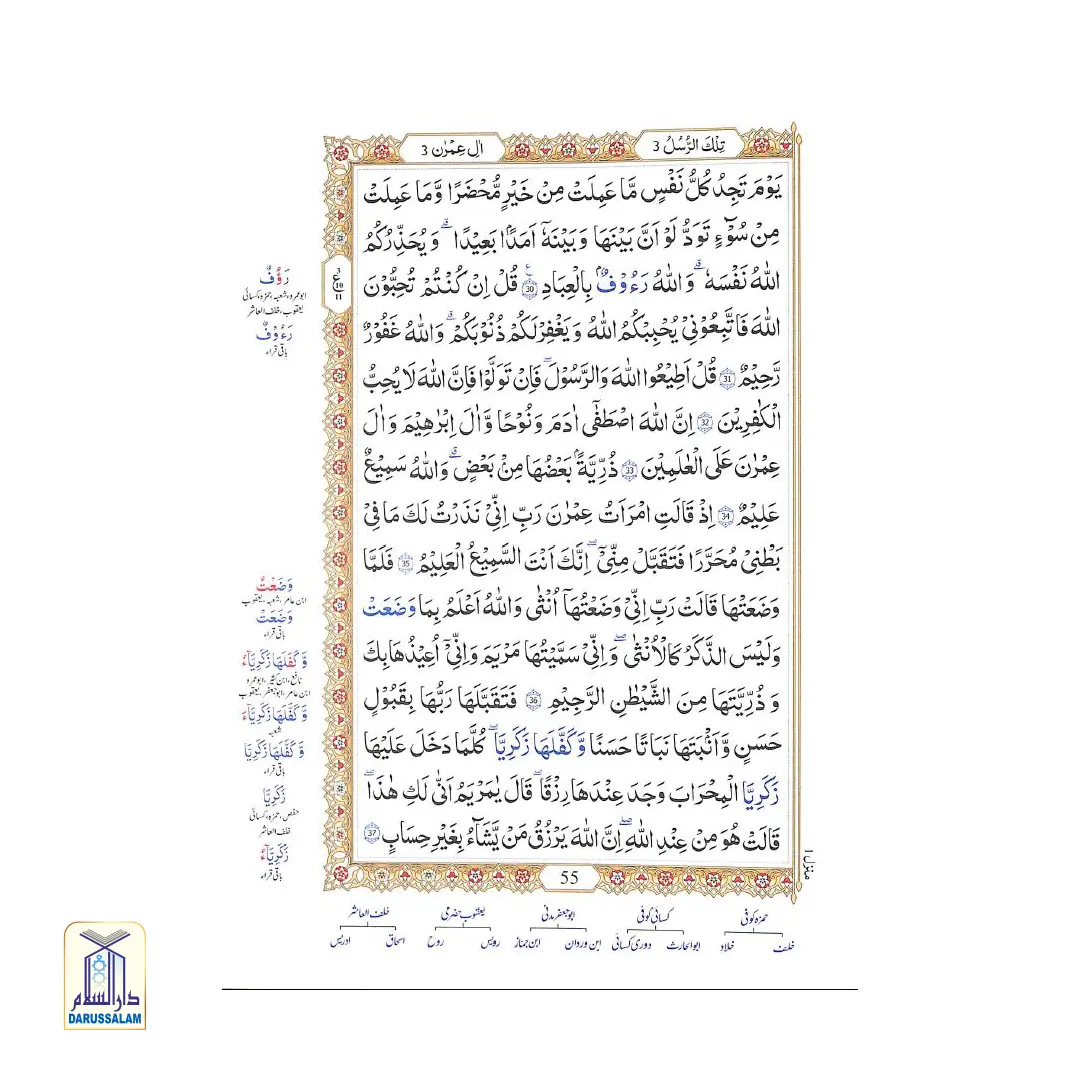 تِلْكَ الرُّسُلُ 3
اٰلِ عِمْرٰن 3
يَوْمَ تَجِدُ كُلُّ نَفْسٍ مَّا عَمِلَتْ مِنْ خَيْرٍ مُّحْضَرًا وَّمَا عَمِلَتْ
مِنْ سُوْٓءٍ تَوَدُّ لَوْ اَنَّ بَيْنَهَا وَبَيْنَهٗٓ اَمَدًۢا بَعِيْدًا ۗ وَيُحَذِّرُكُمُ
اللّٰهُ نَفْسَهٗ ۗ وَاللّٰهُ رَءُوْفٌۢ بِالْعِبَادِ 30 قُلْ اِنْ كُنْتُمْ تُحِبُّوْنَ
اللّٰهَ فَاتَّبِعُوْنِيْ يُحْبِبْكُمُ اللّٰهُ وَيَغْفِرْلَكُمْ ذُنُوْبَكُمْ ۗ وَاللّٰهُ غَفُوْرٌ
رَّحِيْمٌ 31 قُلْ اَطِيْعُوا اللّٰهَ وَالرَّسُوْلَ ۚ فَاِنْ تَوَلَّوْا فَاِنَّ اللّٰهَ لَا يُحِبُّ
الْكٰفِرِيْنَ 32 اِنَّ اللّٰهَ اصْطَفٰٓى اٰدَمَ وَنُوْحًا وَّاٰلَ اِبْرٰهِيْمَ وَاٰلَ
عِمْرٰنَ عَلَى الْعٰلَمِيْنَ 33 ذُرِّيَّةًۢ بَعْضُهَا مِنْۢ بَعْضٍ ۗ وَاللّٰهُ سَمِيْعٌ
عَلِيْمٌ 34 اِذْ قَالَتِ امْرَاَتُ عِمْرٰنَ رَبِّ اِنِّيْ نَذَرْتُ لَكَ مَا فِيْ
بَطْنِيْ مُحَرَّرًا فَتَقَبَّلْ مِنِّيْ ۚ اِنَّكَ اَنْتَ السَّمِيْعُ الْعَلِيْمُ 35 فَلَمَّا
وَضَعَتْهَا قَالَتْ رَبِّ اِنِّيْ وَضَعْتُهَآ اُنْثٰى وَاللّٰهُ اَعْلَمُ بِمَا وَضَعَتْ
وَلَيْسَ الذَّكَرُ كَالْاُنْثٰى ۚ وَاِنِّيْ سَمَّيْتُهَا مَرْيَمَ وَاِنِّيْٓ اُعِيْذُهَابِكَ
وَذُرِّيَّتَهَا مِنَ الشَّيْطٰنِ الرَّجِيْمِ 36 فَتَقَبَّلَهَا رَبُّهَا بِقَبُوْلٍ
حَسَنٍ وَّاَنْۢبَتَهَا نَبَاتًا حَسَنًا وَّكَفَّلَهَا زَكَرِيَّا ۚ كُلَّمَا دَخَلَ عَلَيْهَا
زَكَرِيَّا الْمِحْرَابَ وَجَدَ عِنْدَهَارِزْقًا ۚ قَالَ يٰمَرْيَمُ اَنّٰى لَكِ هٰذَا ۖ
قَالَتْ هُوَ مِنْ عِنْدِ اللّٰهِ ۖ اِنَّ اللّٰهَ يَرْزُقُ مَنْ يَّشَآءُ بِغَيْرِ حِسَابٍ 37
55
منزل ۱
رَؤُفٌ
ابوعمرو، شعبہ، حمزہ، کسائی
یعقوب، خلف العاشر
رَءُوْفٌ
باقی قراء
وَضَعْتُ
ابن عامر، شعبہ، یعقوب
وَضَعَتْ
باقی قراء
وَّكَفَلَهَا زَكَرِيَّآءُ
نافع، ابن کثیر، ابوعمرو
ابن عامر، ابوجعفر، یعقوب
وَّكَفَّلَهَا زَكَرِيَّآءَ
شعبہ
وَّكَفَّلَهَا زَكَرِيَّا
باقی قراء
زَكَرِيَّا
حفص، حمزہ، کسائی
خلف العاشر
زَكَرِيَّآءُ
باقی قراء
حمزہ کوفی کسائی کوفی ابوجعفر مدنی یعقوب حضرمی خلف العاشر
خلف خلاد ابوالحارث دوری کسائی ابن وردان ابن جماز رویس روح اسحاق ادریس
دارالسلام
DARUSSALAM